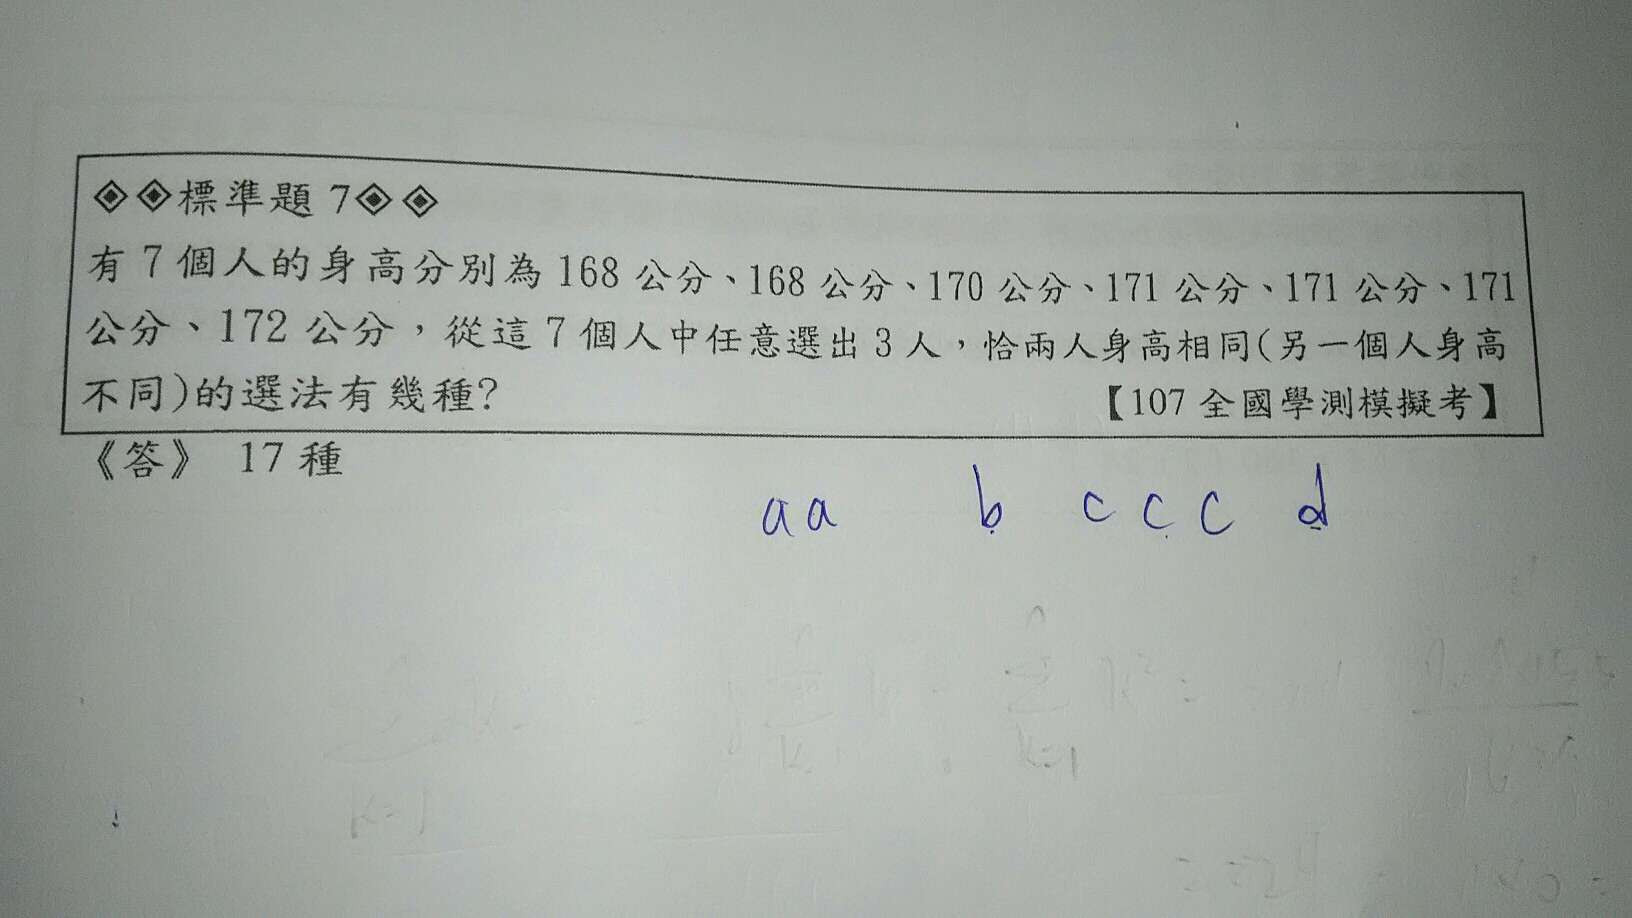 ◈◈標準題 7◈◈
有 7 個人的身高分別為 168 公分、168 公分、170 公分、171 公分、171 公分、171
公分、172 公分，從這 7 個人中任意選出 3 人，恰兩人身高相同(另一個人身高
不同)的選法有幾種? 【107 全國學測模擬考】
《答》 17 種
aa b c c c d